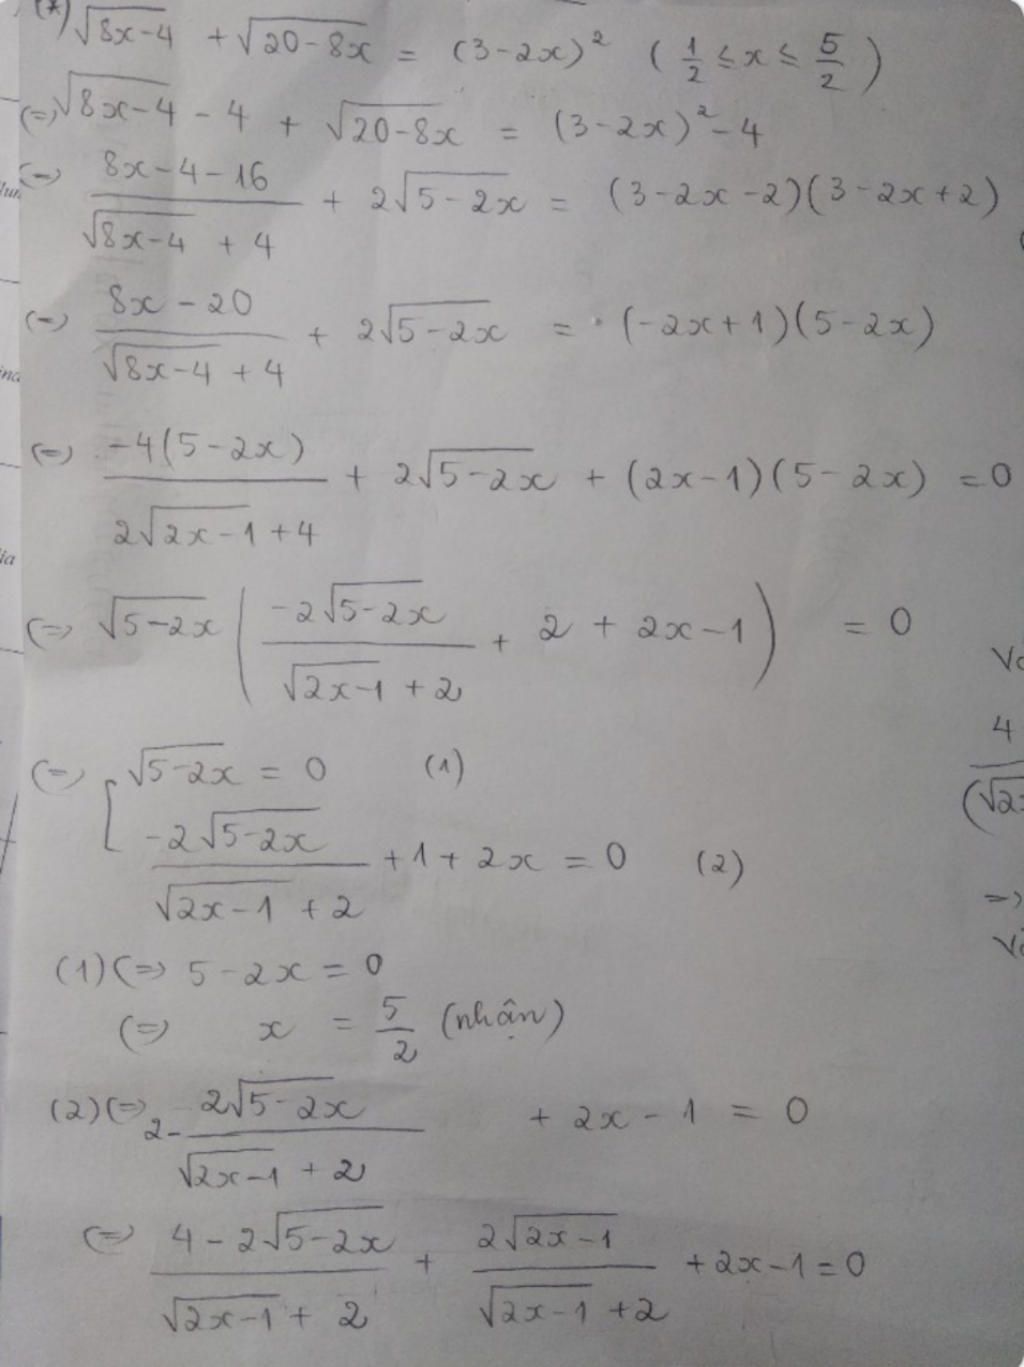 (*) √(8x-4) + √(20-8x) = (3-2x)² (1/2 ≤ x ≤ 5/2)
(=) √(8x-4) - 4 + √(20-8x) = (3-2x)² - 4
(=) (8x-4-16)/(√(8x-4) + 4) + 2√(5-2x) = (3-2x-2)(3-2x+2)
(=) (8x-20)/(√(8x-4) + 4) + 2√(5-2x) = (-2x+1)(5-2x)
(=) -4(5-2x)/(2√(2x-1) + 4) + 2√(5-2x) + (2x-1)(5-2x) = 0
(=) √(5-2x) (-2√(5-2x)/(√(2x-1) + 2) + 2 + 2x-1) = 0
(=) [ √(5-2x) = 0 (1)
-2√(5-2x)/(√(2x-1) + 2) + 1 + 2x = 0 (2)
(1) (=) 5-2x = 0
(=) x = 5/2 (nhận)
(2) (=) 2 - 2√(5-2x)/(√(2x-1) + 2) + 2x - 1 = 0
(=) (4-2√(5-2x))/(√(2x-1) + 2) + 2√(2x-1)/(√(2x-1) + 2) + 2x-1 = 0